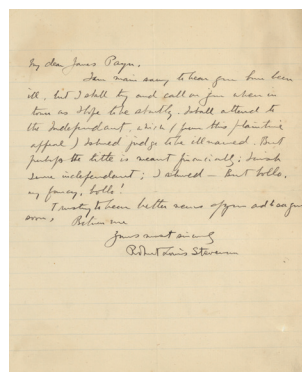 My dear James Payn,
I am main sorry to hear you have been
ill, but I shall try and call on you when in
town as I hope to be shortly. I shall attend to
the Independent, which (from this plaintive
appeal) I should judge to be ill-named. But
perhaps the title is meant ironically; I wish
some independent; I
my fancy, bolls!
Trusting to hear better news of you and to see you
soon, Believe me
Yours most sincerely
Robert Louis Stevenson